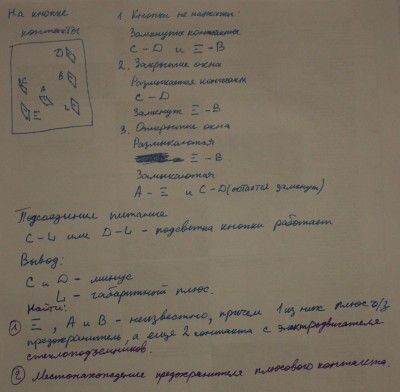 На кнопке
контакты
D
B
E
A
Ξ
L
1. Кнопки не нажаты:
Замкнуты контакты
C - D и Ξ - B
2. Закрытие окна
Размыкается контакты
C - D
Замкнут Ξ - B
3. Открытие окна
Размыкаются
Ξ - B
Замыкаются
A - Ξ и C - D (остается замкнут)
Подсоединение питание
C - L или D - L - подсветка кнопки работает
Вывод:
C и D - минус
L - габаритный плюс.
Найти:
① Ξ, A и B - неизвестно, причем 1 из них плюс ч/з
предохранитель, а еще 2 контакта с электродвигателя
стеклоподъемников.
② Местонахождение предохранителя плюсового контакта.